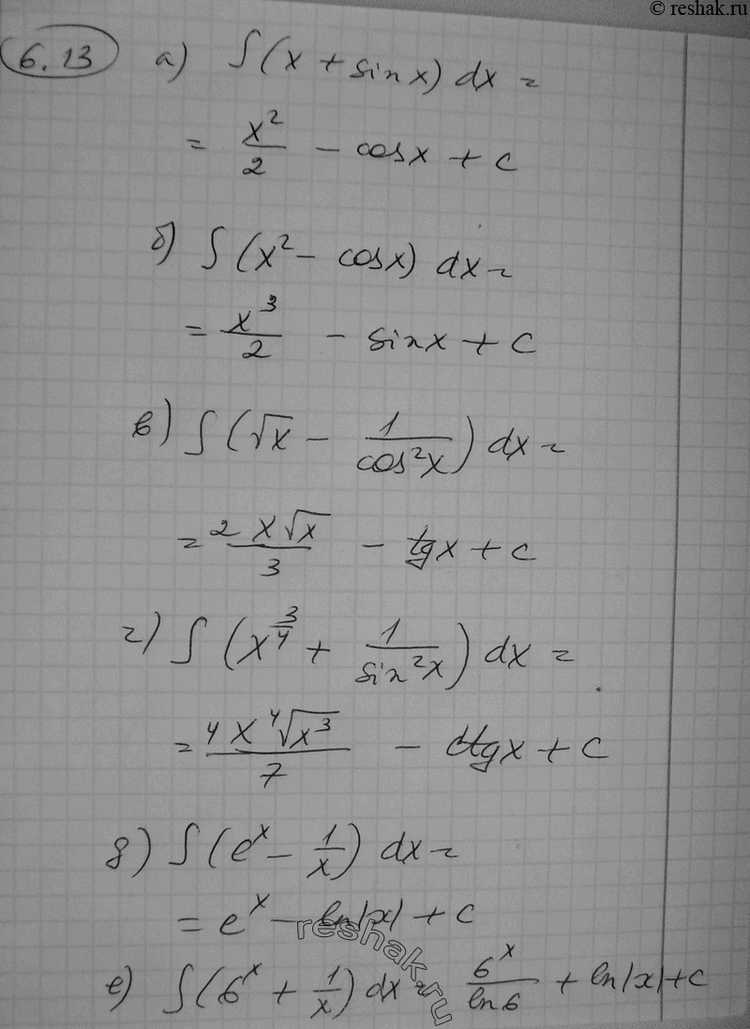 © reshak.ru
6.13 а) ∫(x + sinx) dx =
= x²/2 - cosx + c
б) ∫(x² - cosx) dx =
= x³/2 - sinx + c
в) ∫(√x - 1/cos²x) dx =
= 2x√x/3 - tgx + c
г) ∫(x^(3/4) + 1/sin²x) dx =
= 4x⁴√x³/7 - ctgx + c
д) ∫(eˣ - 1/x) dx =
= eˣ - ln|x| + c
е) ∫(6ˣ + 1/x) dx = 6ˣ/ln6 + ln|x| + c
reshak.ru